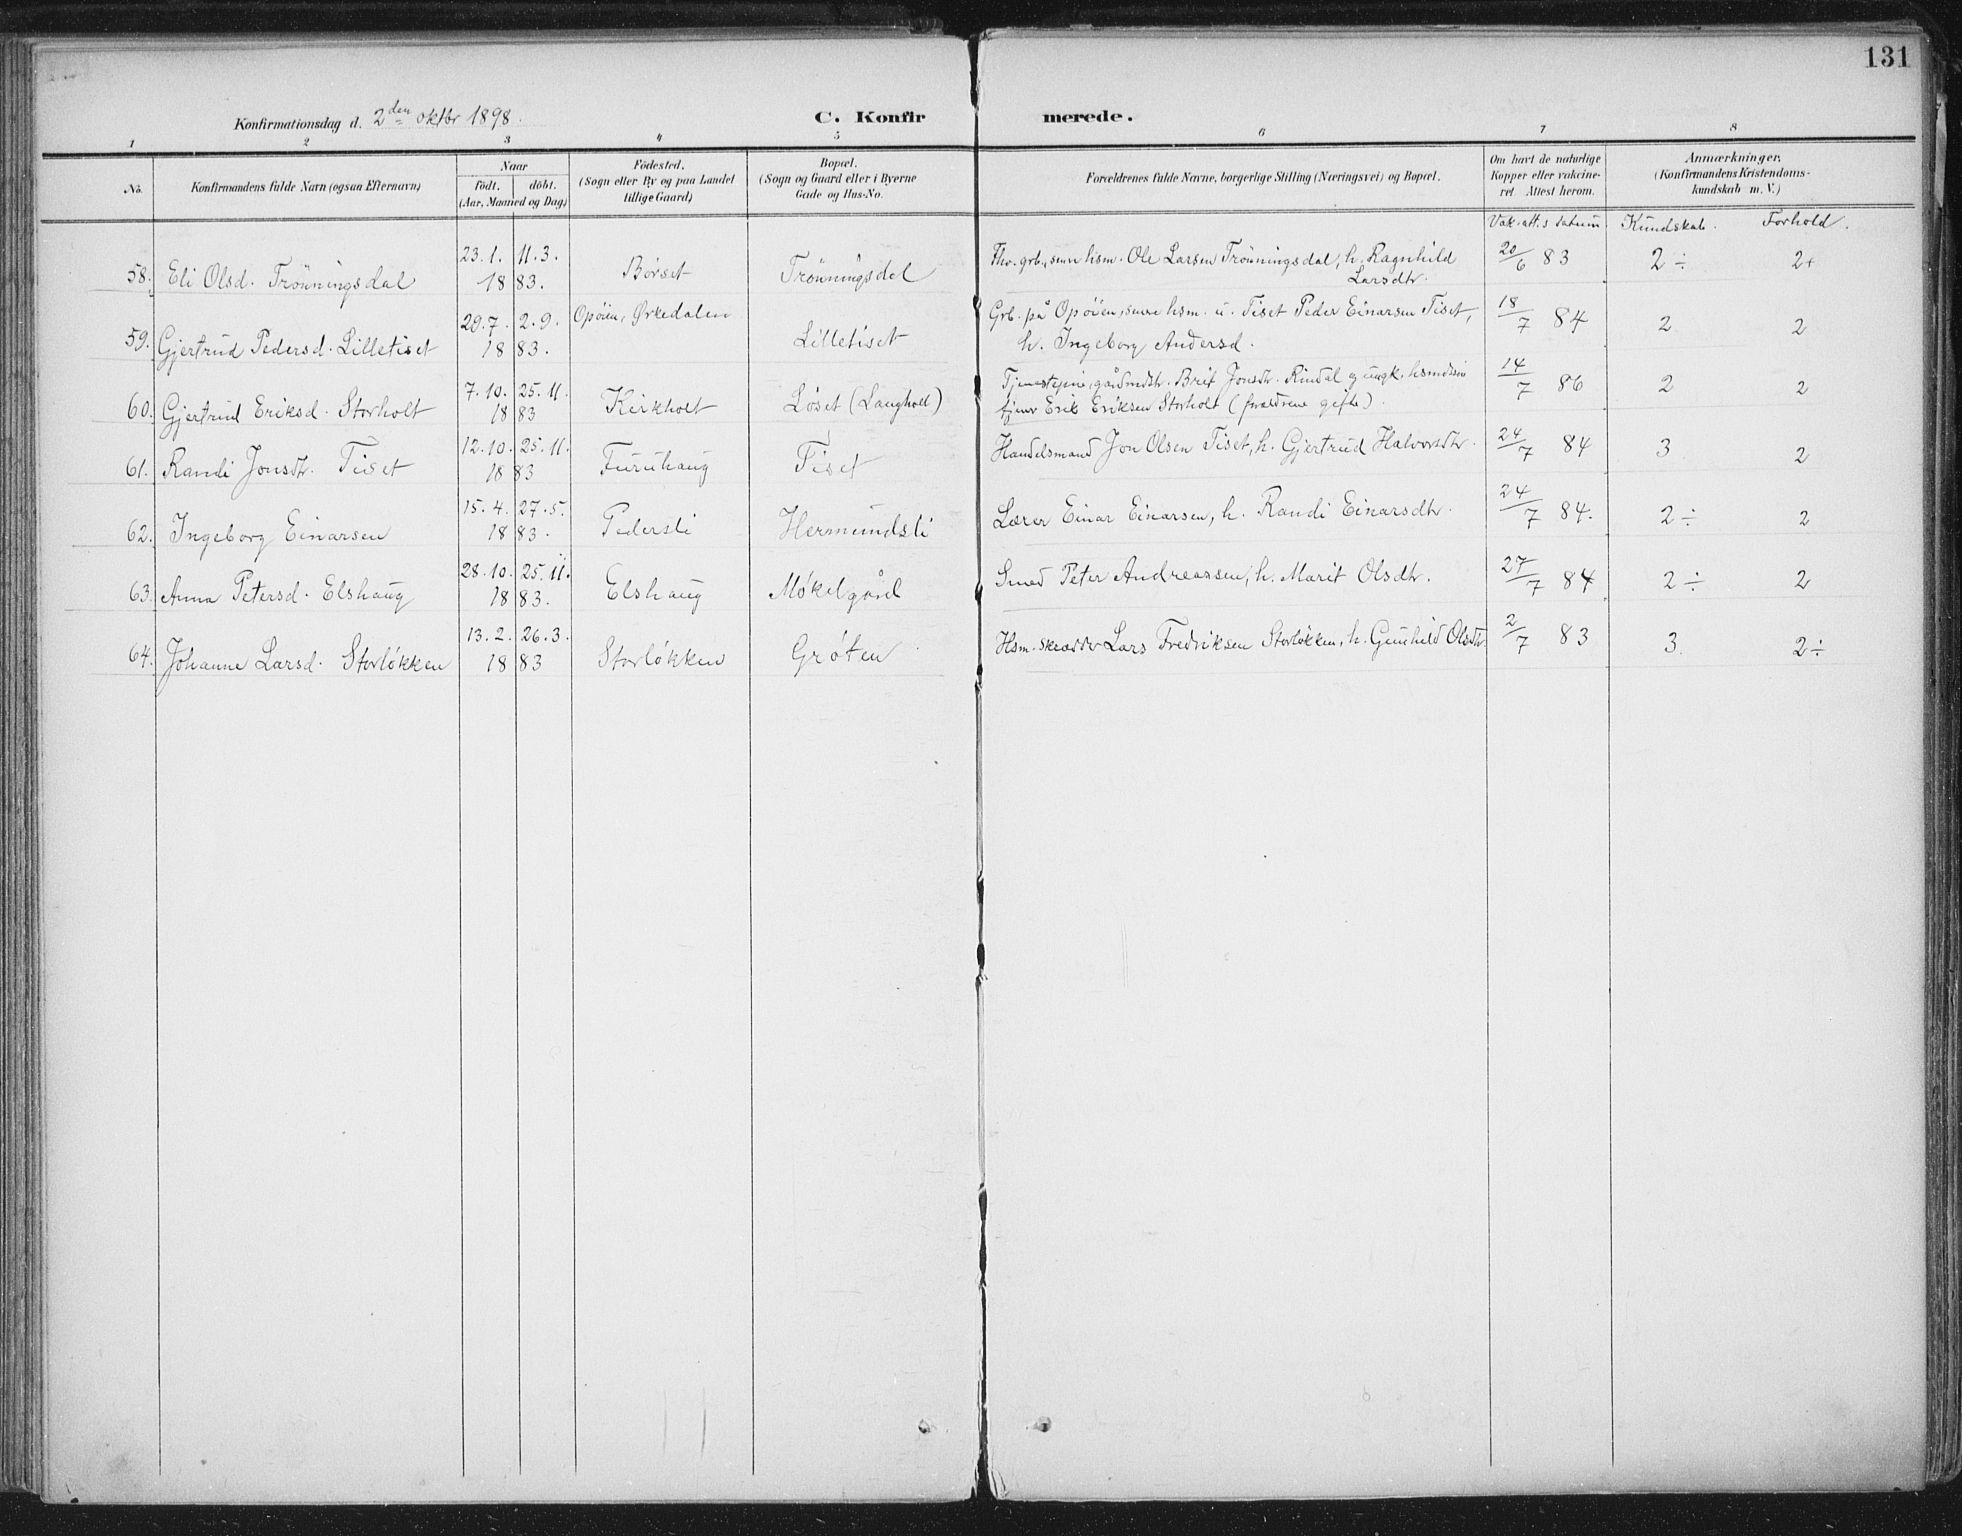 131
Konfirmationsdag d. 2den oktbr 1898. C. Konfirmerede.
1 2 3 4 5 6 7 8
No. Konfirmandens fulde Navn (ogsaa Efternavn) Naar födt. döbt. (Aar, Maaned og Dag) Födested. (Sogn eller By og paa Landet tillige Gaard) Bopæl. (Sogn og Gaard eller i Byerne Gade og Hus-No. Forældrenes fulde Navne, borgerlige Stilling (Næringsvei) og Bopæl. Om havt de naturlige Kopper eller vakcineret. Attest herom. Anmærkninger. (Konfirmandens Kristendomskundskab m. V.)
Vak.att.s datum Kundskab. Forhold.
58. Eli Olsd. Trönningsdal 23.1. 11.3. 1883. Börset Trönningsdal Fhv. grb., senere hsm. Ole Larsen Trönningsdal, h. Ragnhild Larsdtr. 20/6 83 2÷ 2+
59. Gjertrud Pedersd. Lilletiset 29.7. 2.9. 1883. Opöien, Ørkedalen Lilletiset Grb. på Opöien, senere hsm. u. Tiset Peder Einarsen Tiset, h. Ingeborg Andersd. 18/7 84 2 2
60. Gjertrud Eriksd. Storholt 7.10. 25.11. 1883 Kirkholt Löset (Langholt) Tjenestepine, gårdmdstr. Brit Jonsdtr. Rindal og ungk. tjener Erik Eriksen Storholt (forældrene gifte). 14/7 86 2 2
61. Randi Jonsdtr. Tiset 12.10. 25.11. 1883 Furuhaug Tiset Handelsmand Jon Olsen Tiset, h. Gjertrud Halvorsdtr. 24/7 84 3 2
62. Ingeborg Einarsen 15.4. 27.5. 1883. Pedersli Hermundsli Lærer Einar Einarsen, h. Randi Einarsdtr. 24/7 84. 2÷ 2
63. Anna Petersd. Elshaug 28.10. 25.11. 1883. Elshaug Møkelgård Smed Peter Andreassen, h. Marit Olsdtr. 27/7 84 2÷ 2
64. Johanne Larsd. Storløkken 13.2. 26.3. 1883 Storløkken Grøten Hsm. skrædder Lars Fredriksen Storløkken, h. Gunhild Olsdtr 2/7 83 3. 2÷